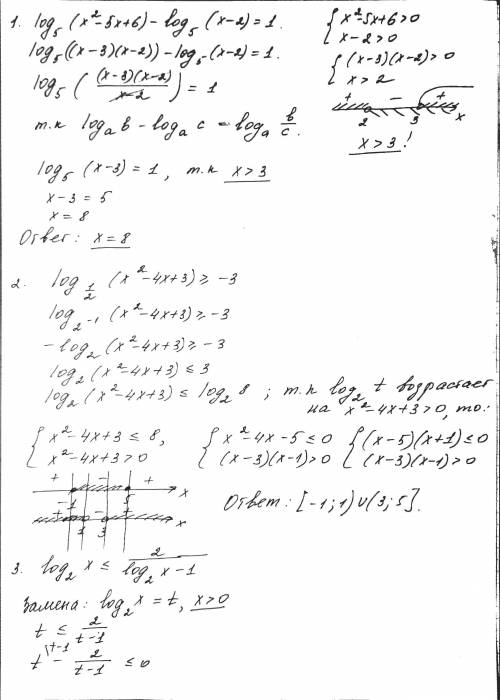 1. log₅(x²-5x+6)-log₅(x-2)=1.
log₅((x-3)(x-2))-log₅(x-2)=1.
log₅((x-3)(x-2)/(x-2))=1
т.к logₐb-logₐc=logₐ b/c.
{x²-5x+6>0
x-2>0
{(x-3)(x-2)>0
x>2
+ - +
2 3 x
x>3!
log₅(x-3)=1, т.к x>3
x-3=5
x=8
Ответ: x=8
2. log_{1/2}(x²-4x+3)≥-3
log_{2⁻¹}(x²-4x+3)≥-3
-log₂(x²-4x+3)≥-3
log₂(x²-4x+3)≤3
log₂(x²-4x+3)≤log₂8; т.к log₂t возрастает
на x²-4x+3>0, то:
{x²-4x+3≤8, {x²-4x-5≤0 {(x-5)(x+1)≤0
x²-4x+3>0 (x-3)(x-1)>0 (x-3)(x-1)>0
+ - +
-1 5 x
+ - +
1 3 x
Ответ: [-1;1)∪(3;5].
3. log₂x≤2/(log₂x-1)
Замена: log₂x=t, x>0
t≤2/(t-1)
t\t-1 - 2/(t-1)≤0